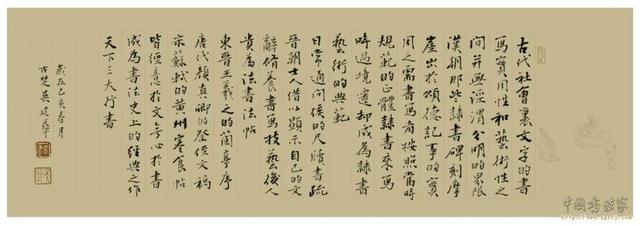 古代社會裏文字的書
寫實用性和藝術性之
間并無涇渭分明的界限
漢朝那些隸書碑刻摩
崖出於頌德記事的實
用之需書寫者按照當時
規範的正體隸書來寫
時過境遷却成為隸書
藝術的典範
日常通問候的尺牘書疏
晉朝士人借以顯示自己的文
辭修養書寫技藝後人
貴為法書法帖
東晉王羲之的蘭亭序
唐代顏真卿的祭侄文稿
宋蘇軾的黃州寒食帖
皆經意於文無心於書
成為書法史上的經典之作
天下三大行書
歲在己亥春月
古楚吳建
中國書法家